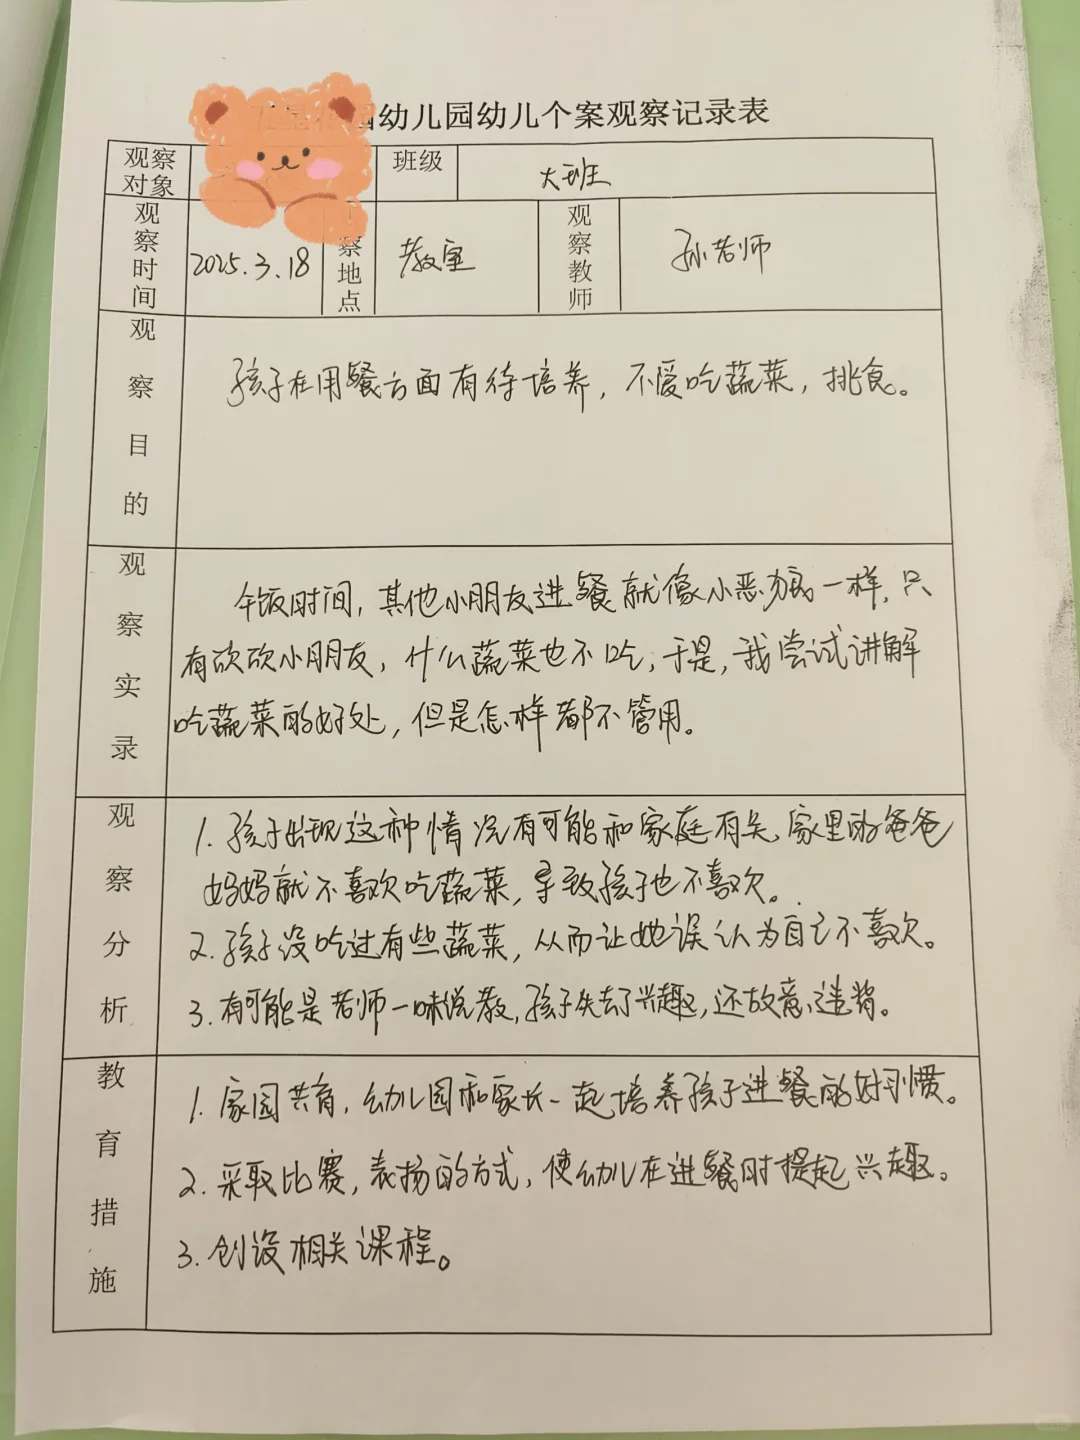 幼儿园幼儿个案观察记录表
观察对象 班级 大班
观察时间 2025.3.18 察地点 教室 观察教师 孙老师
观察目的
孩子在用餐方面有待培养，不爱吃蔬菜，挑食。
观察实录
午饭时间，其他小朋友进餐就像小恶狼一样，只
有欣欣小朋友，什么蔬菜也不吃，于是，我尝试讲解
吃蔬菜的好处，但是怎样都不管用。
观察分析
1. 孩子出现这种情况有可能和家庭有关，家里的爸爸
妈妈就不喜欢吃蔬菜，导致孩子也不喜欢。
2. 孩子没吃过有些蔬菜，从而让她误认为自己不喜欢。
3. 有可能是老师一味说教，孩子失去了兴趣，还故意
教育措施
1. 家园共育，幼儿园和家长一起培养孩子进餐的好习惯。
2. 采取比赛，表扬的方式，使幼儿在进餐时提起兴趣。
3. 创设相关课程。